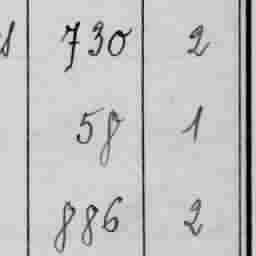 730 2
58 1
886 2